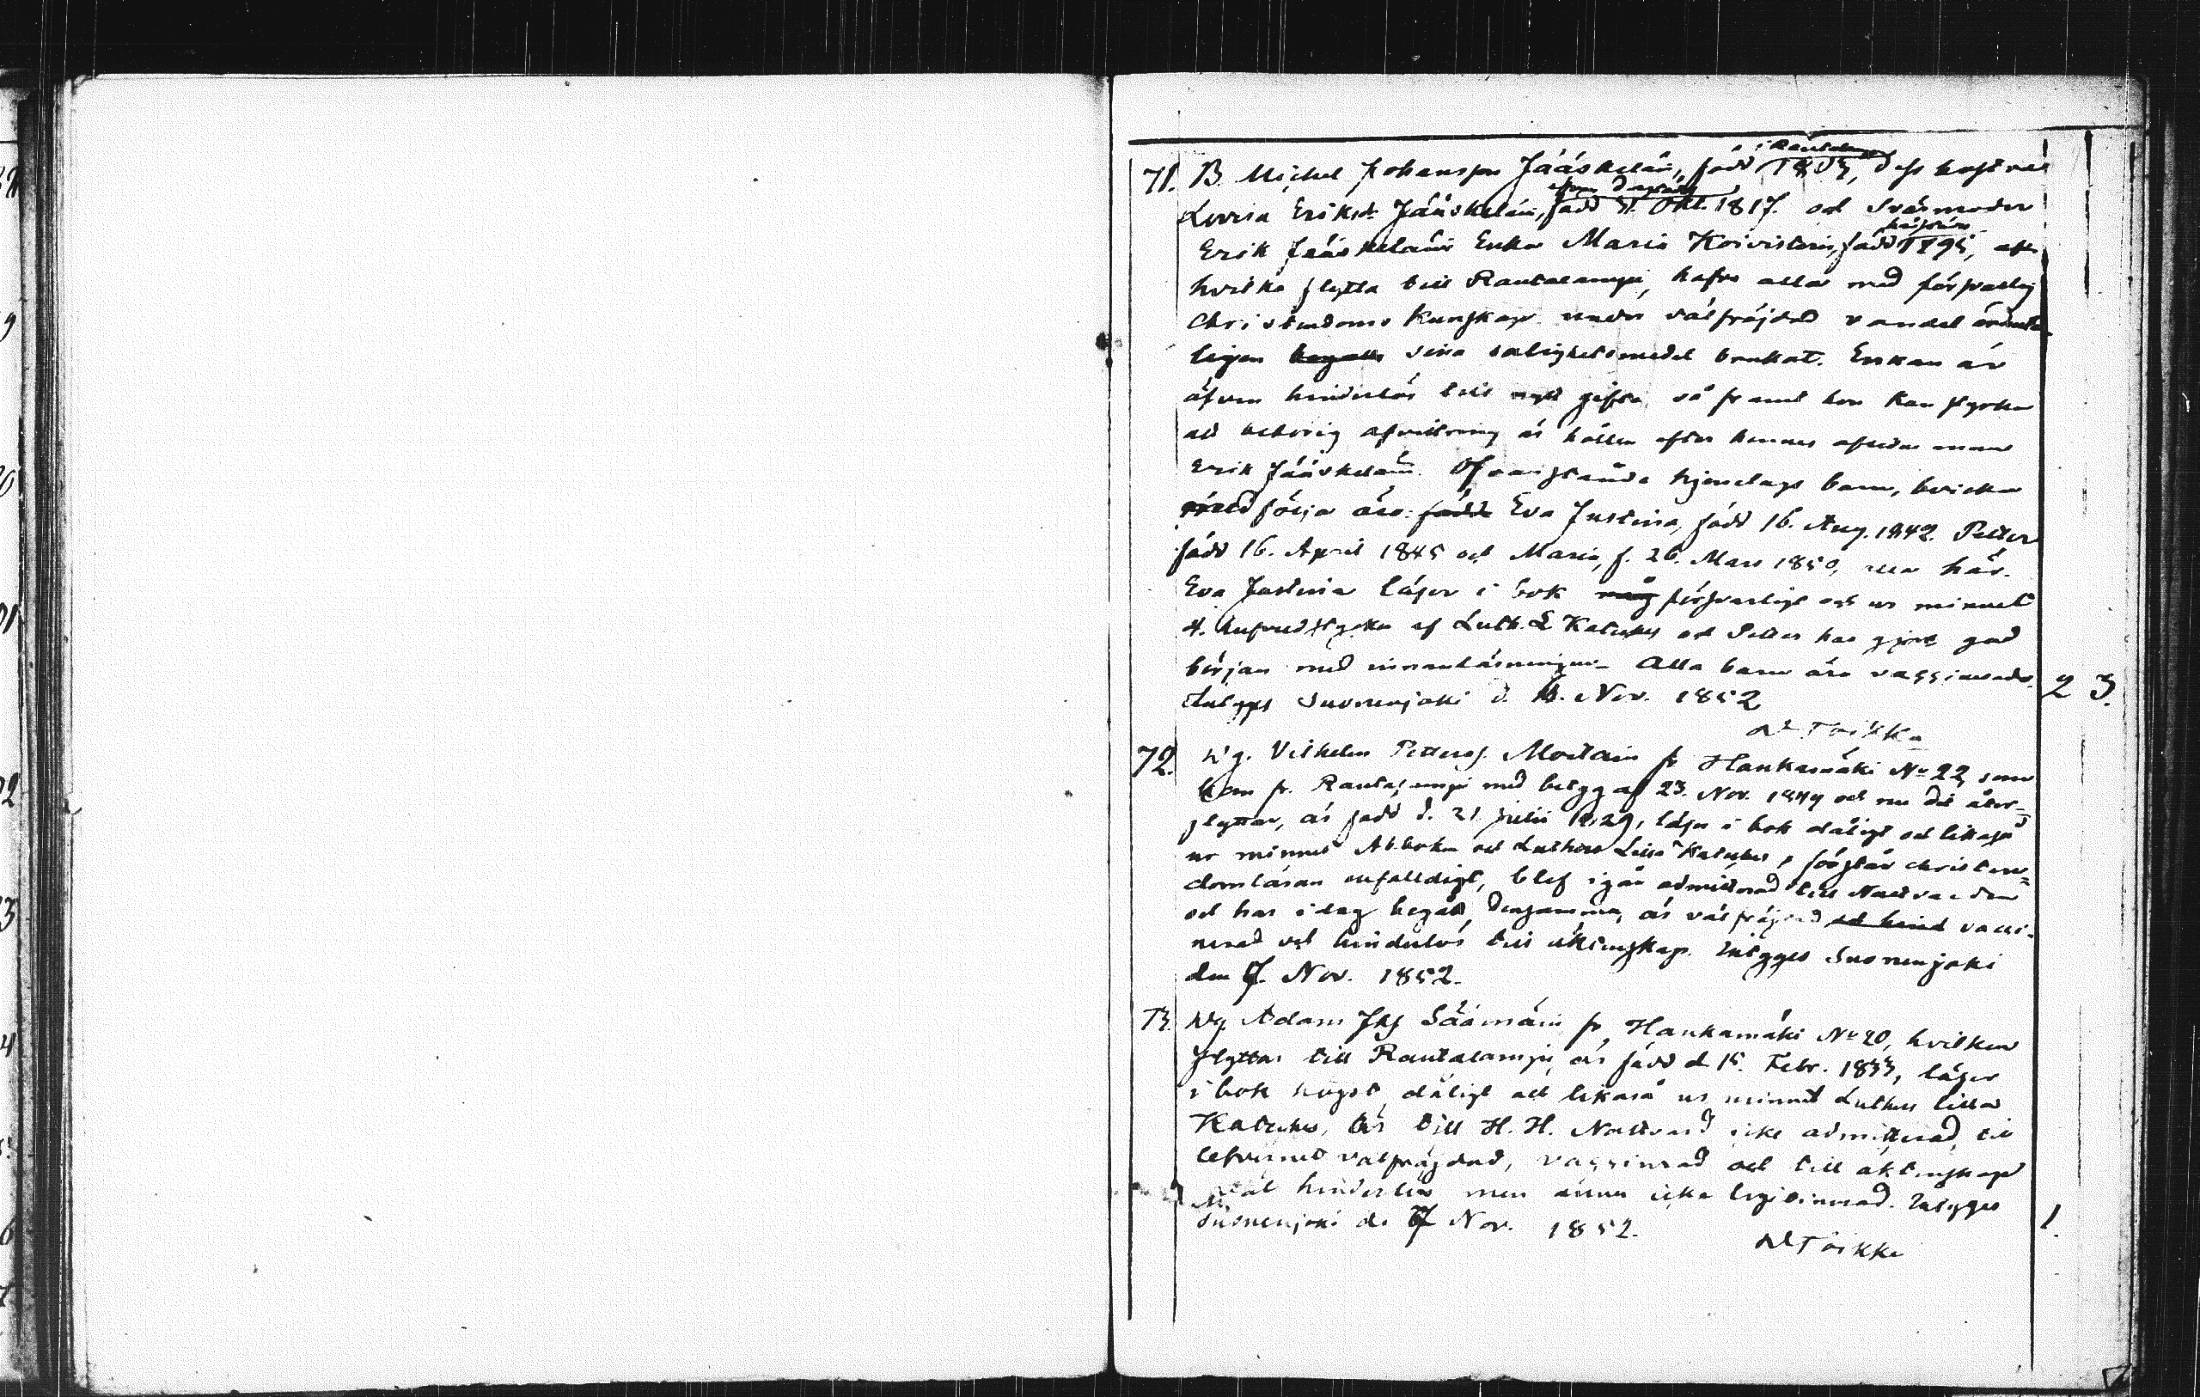 i Rautalampi
71. B. Michel Johansson Jääskeläin, född 1803, dess hustru
Lovisa Eriksdr Jääskeläin, född 21. Okt. 1817. och Svärmoder
Erik Jääskeläins Enka Maria Koivistoin, född 1795,
hvilka flytta till Rautalampi, hafva alla med försvarlig
Christendoms kunskap under välfräjdad vandel ordent-
ligen sina salighetsmedel brukat. Enkan är
äfven hinderlös till nytt gifte, så framt hon kan styrka
att behörig afvittring är hållen efter hennes aflidne man
Erik Jääskeläin. Ofvanstående hjonelags barn, hvilka
medfölja äro: födde Eva Justina, född 16. Aug. 1842. Petter
född 16. April 1845 och Maria, f. 26. Mars 1850, alla här.
Eva Justina läser i bok försvarligt och ur minnet
4. hufvudstycken af Luth. L. Kateches och Petter har gjort god
början med innanläsningen. Alla barn äro vaccinerade.
Intyges Suonenjoki d. Nov. 1852 2 3.
Toikka
72. Dg. Vilhelm Petterss. Moilain fr Hankamäki No 22, som
kom fr. Rautalampi med betyg af 23. Nov. 1849 och nu dit åter-
flyttar, är född d. 21. Julii 1829, läser i bok dåligt och likaså
ur minnet Abboken och Luthers Lilla Kateches, förstår christen-
domläran enfalldigt, blef igår admitterad till Nattvarden
och har idag begått densamma, är välfräjdad och hind vacci-
nerad och hinderlös till äktenskap. Intyges Suonenjoki
den 7. Nov. 1852.
73. Dg Adam Jks Säämäin fr, Hankamäki No 20, hvilken
flyttar till Rautalampi, är född d. 15. Febr. 1833, läser
i bok högst dåligt och likaså ur minnet Luthers lilla
Kateches, är till H. H. Nattvard icke admitterad, till
lefvernet välfräjdad, vaccinerad och till äktenskap
väl hinderlös men ännu icke legitimerad. Intyges
Suonenjoki d. 7 Nov. 1852. 1.
Toikka